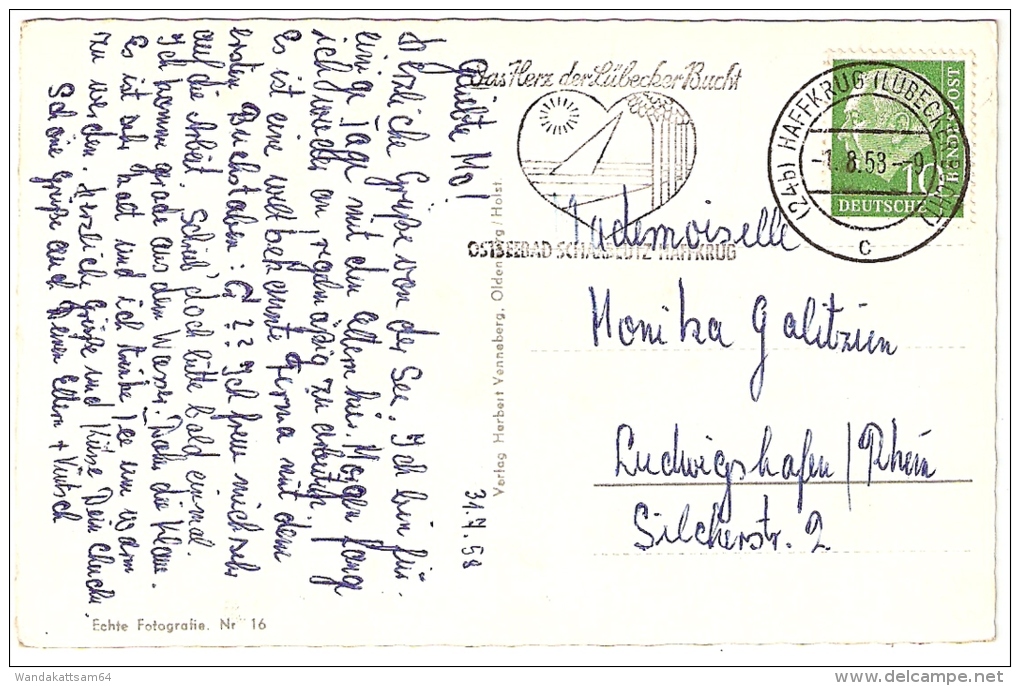 Geliebte Mo!
31.7.58
Herzliche Grüße von der See. Ich bin für
einige Tage mit den Eltern hier. Morgen fange
ich jedoch an regelmäßig zu arbeiten.
Es ist eine weltbekannte Firma mit dem
ersten Buchstaben: G?? Ich freue mich sehr
auf die Arbeit. Schreib' doch bitte bald einmal.
Ich komme grade aus dem Wasser.
Es ist sehr kalt und ich trinke Tee um warm
zu werden. Herzliche Grüße und Küsse Dein
Schöne Grüße auch Deinen Eltern +
Echte Fotografie. Nr 16
Verlag Herbert Venneberg, Oldenburg / Holst.
Das Herz der Lübecker Bucht
OSTSEEBAD SCHARBEUTZ HAFFKRUG
(24b) HAFFKRUG (LÜBECKER BUCHT)
-1.8.58.--9
c
10
DEUTSCHE
BUNDESPOST
Mademoiselle
Monika Galitzien
Ludwigshafen/Rhein
Silcherstr. 2
Wandakattsam64
www.delcampe.net